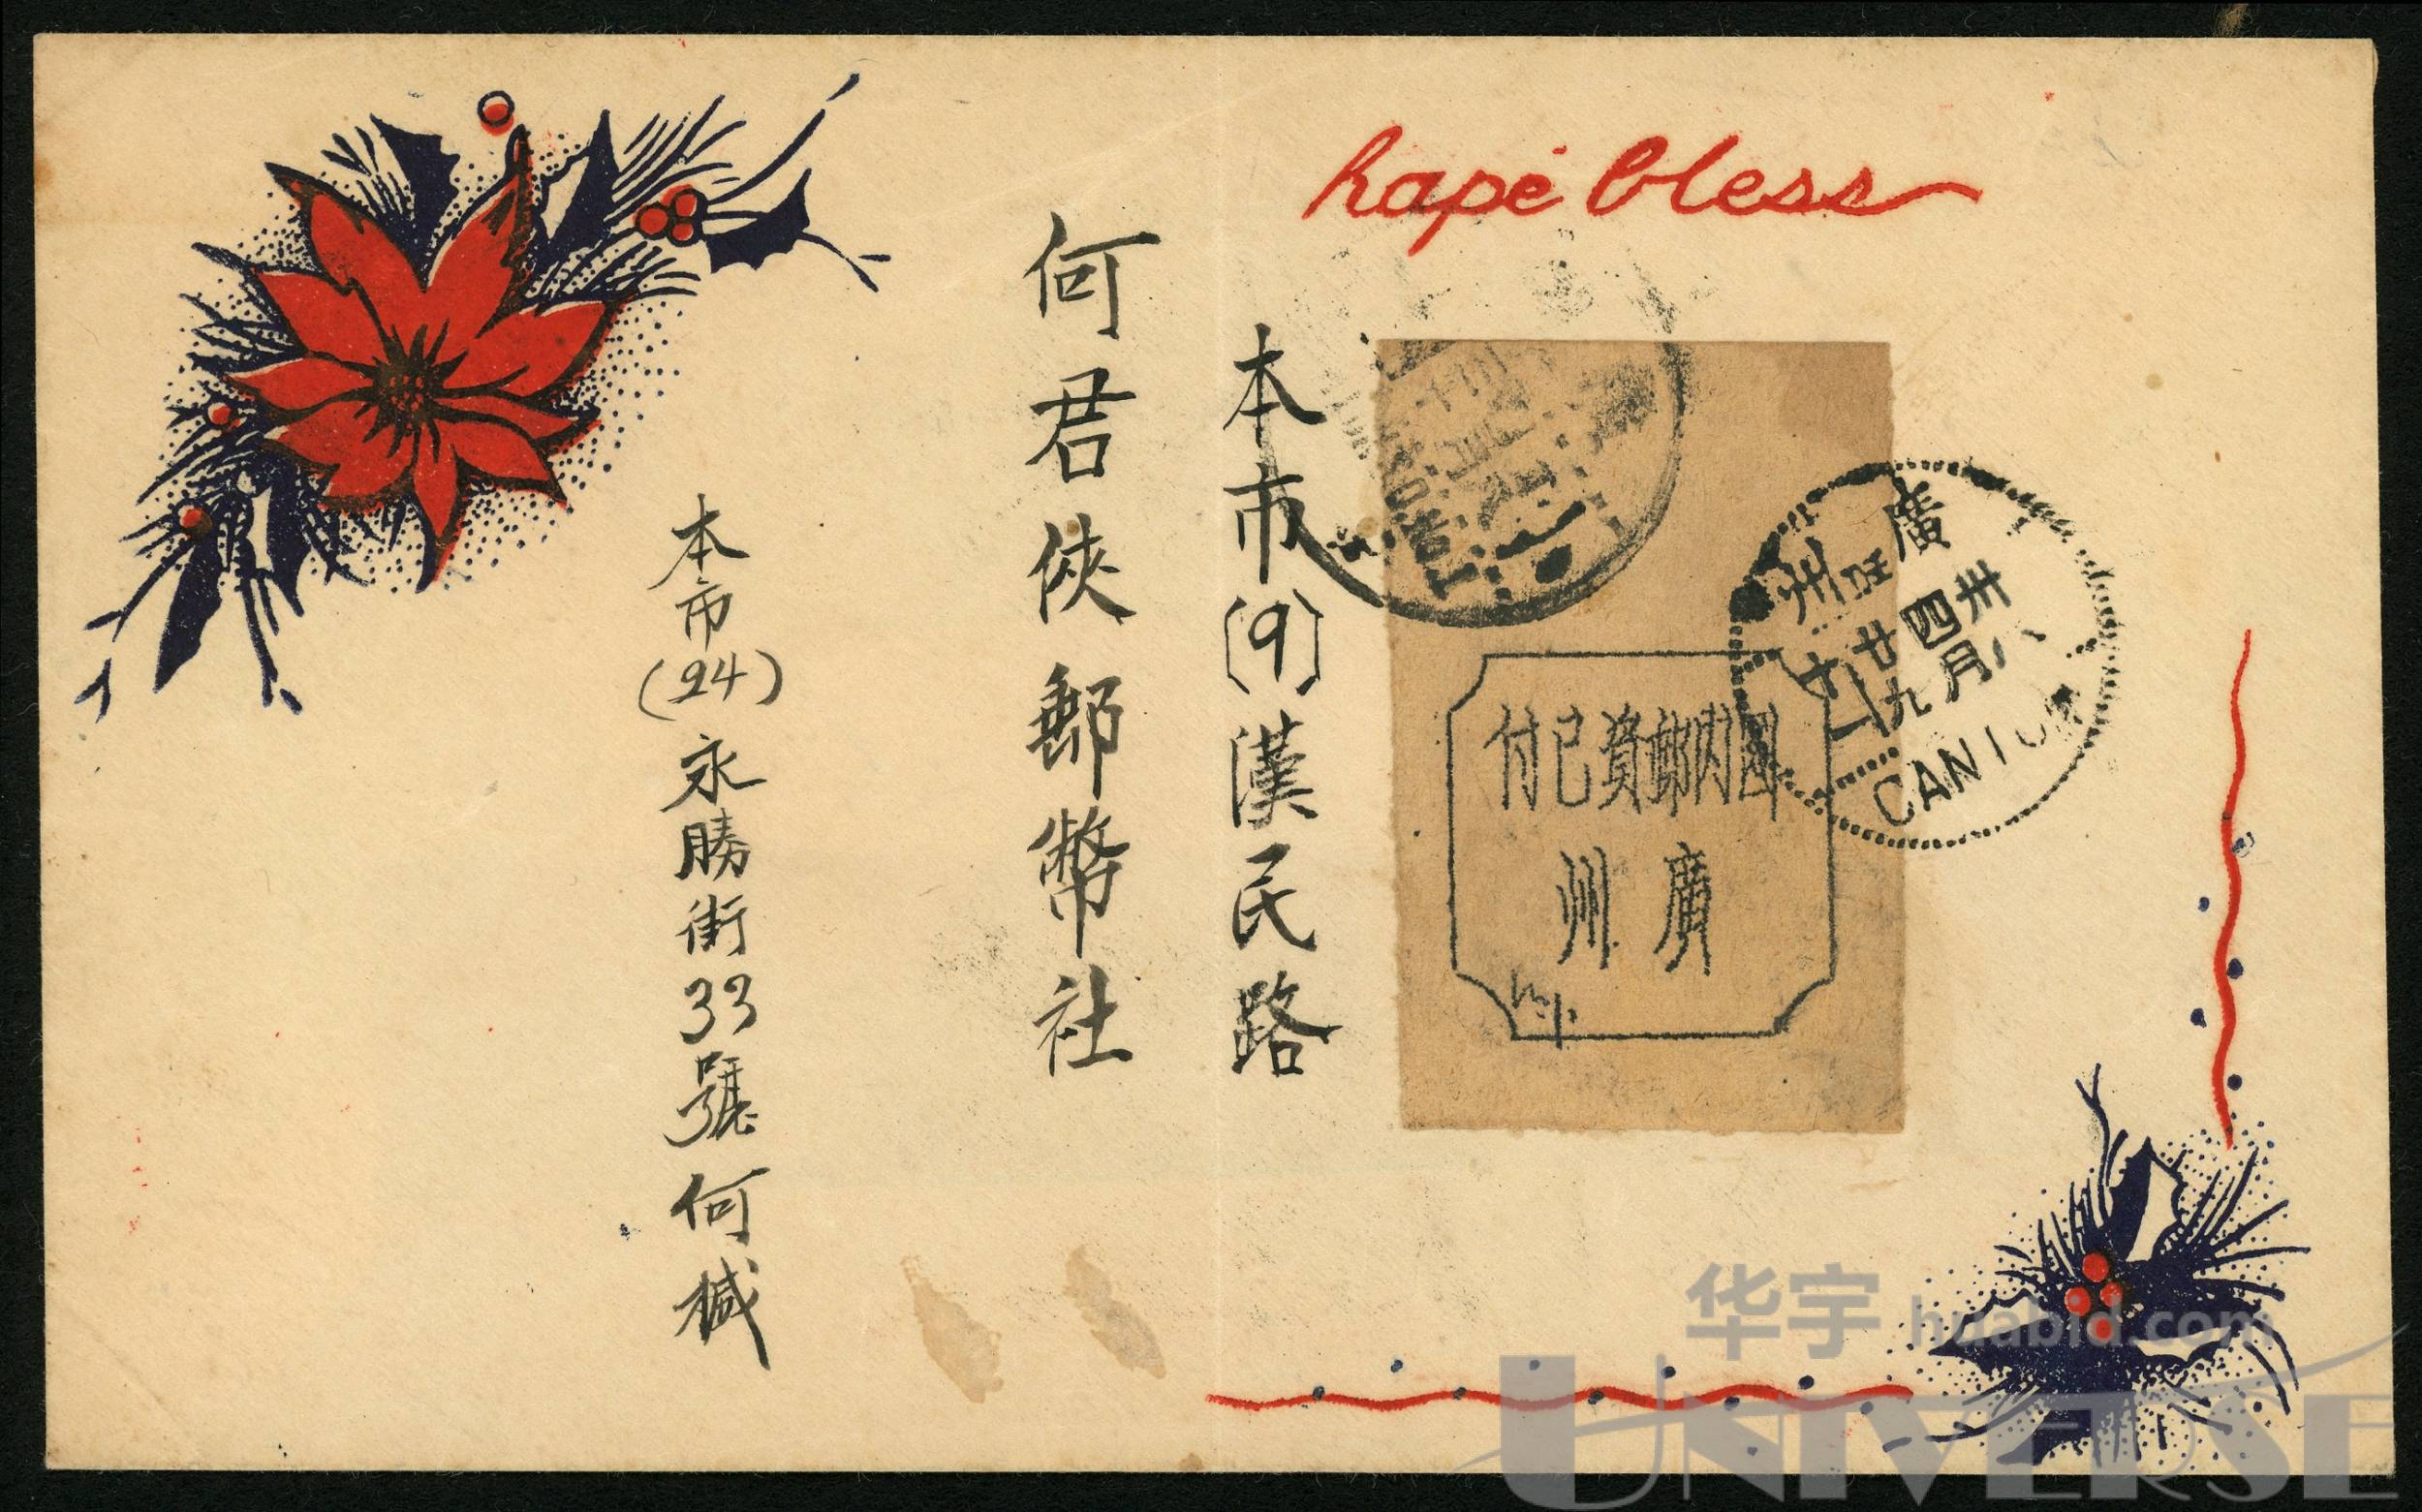 hapé bless
本市(9)漢民路
何君俠郵幣社
本市(24)永勝街33號何楲
付已資郵內國
州廣
廣州
卅八
四月
廿九
CANTON
华宇 huabid.com
UNIVERSE